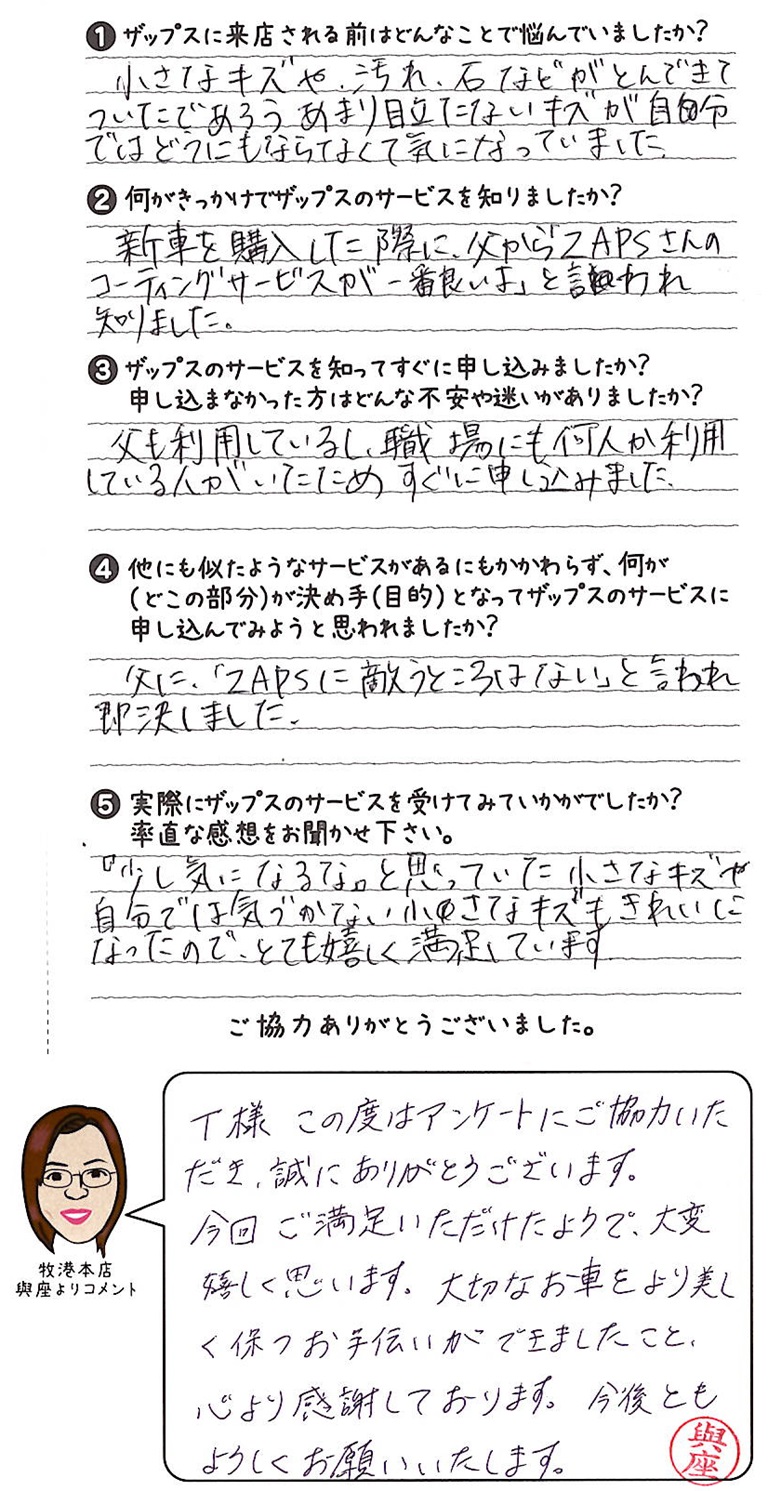 ❶ ザップスに来店される前はどんなことで悩んでいましたか?
小さなキズや、汚れ、石などがとんできて
ついたであろうあまり目立たないキズが自分
ではどうにもならなくて気になっていました。
❷ 何がきっかけでザップスのサービスを知りましたか?
新車を購入した際に、父から「ZAPSさんの
コーティングサービスが一番良いよ」と言われ
知りました。
❸ ザップスのサービスを知ってすぐに申し込みましたか?
申し込まなかった方はどんな不安や迷いがありましたか?
父も利用しているし、職場にも何人か利用
している人がいたためすぐに申し込みました。
❹ 他にも似たようなサービスがあるにもかかわらず、何が
(どこの部分)が決め手(目的)となってザップスのサービスに
申し込んでみようと思われましたか?
父に、「ZAPSに敵うところはない」と言われ
即決しました。
❺ 実際にザップスのサービスを受けてみていかがでしたか?
率直な感想をお聞かせ下さい。
『少し気になるな』と思っていた小さなキズや
自分では気づかない小さなキズもきれいに
なったので、とても嬉しく満足しています
ご協力ありがとうございました。
T様 この度はアンケートにご協力いた
だき、誠にありがとうございます。
今回ご満足いただけたようで、大変
嬉しく思います。大切なお車をより美し
く保つお手伝いができましたこと、
心より感謝しております。今後とも
よろしくお願いいたします。
與座
牧港本店
與座よりコメント